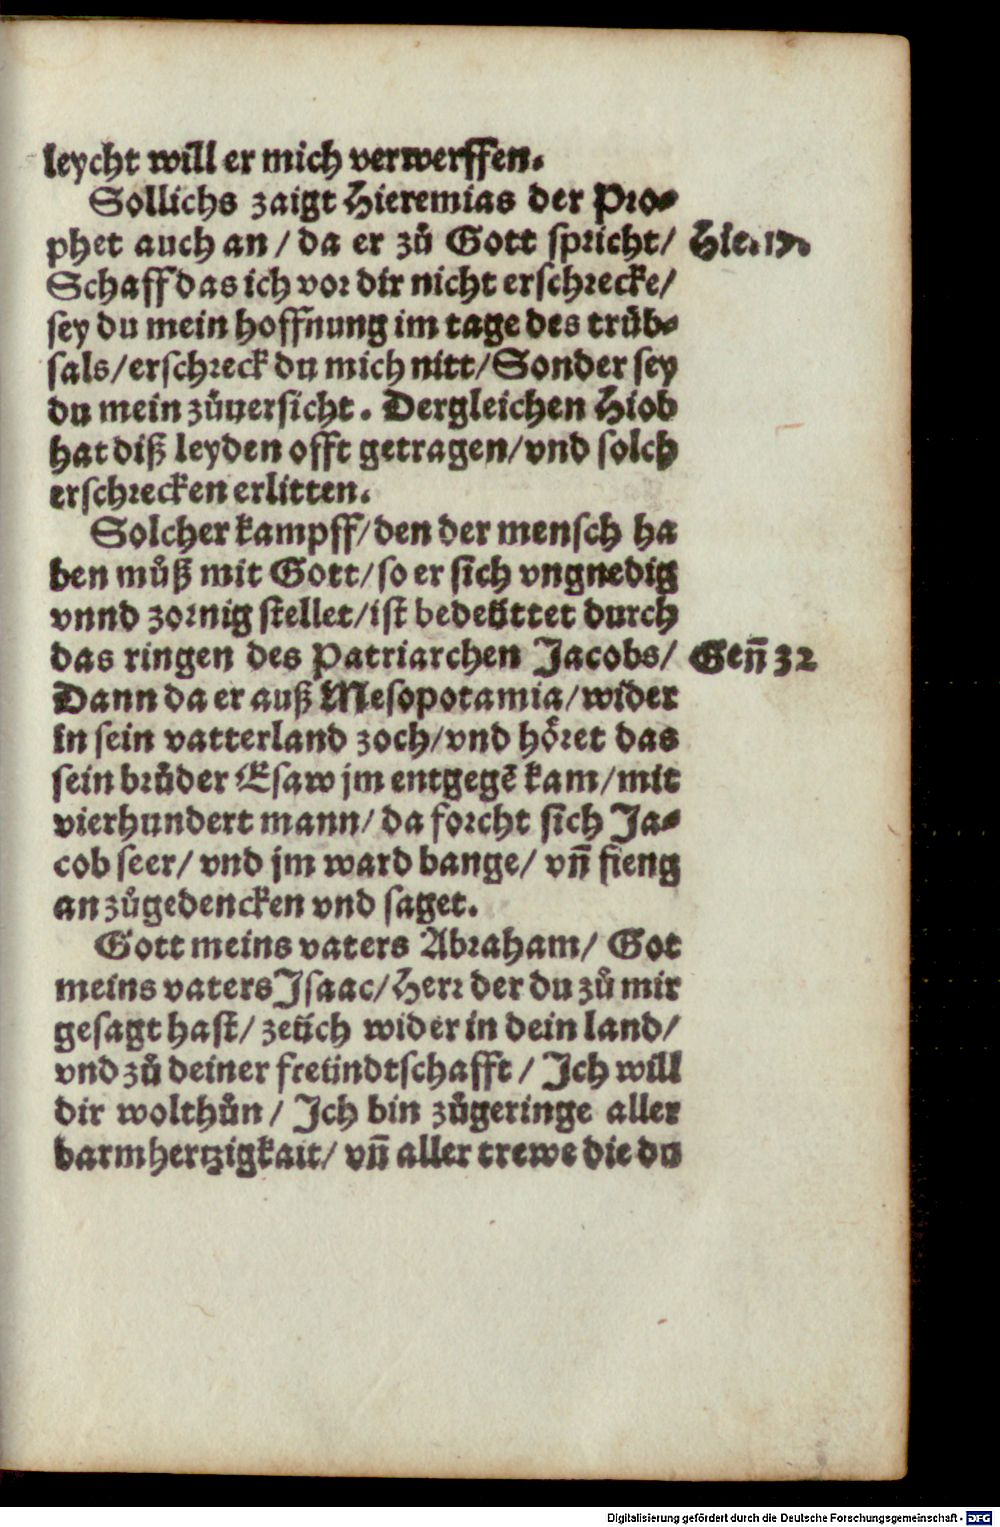 leycht will er mich verwerffen.
Sollichs zaigt Hieremias der Pro-
phet auch an / da er zů Gott spricht/ Hie. 17.
Schaff das ich vor dir nicht erschrecke/
sey du mein hoffnung im tage des trůb-
sals/erschreck du mich nitt/Sonder sey
du mein zůuersicht. Dergleichen Hiob
hat diß leyden offt getragen/vnd solch
erschrecken erlitten.
Solcher kampff/den der mensch ha
ben můß mit Gott/so er sich vngnedig
vnnd zornig stellet/ist bedeůttet durch
das ringen des Patriarchen Jacobs/ Geñ 32
Dann da er auß Mesopotamia/wider
in sein vatterland zoch/vnd hőret das
sein brůder Esaw jm entgegē kam/mit
vierhundert mann/da forcht sich Ja-
cob seer/ vnd jm ward bange/ vñ fieng
an zůgedencken vnd saget.
Gott meins vaters Abraham/ Got
meins vaters Isaac/Herr der du zů mir
gesagt hast/ zeüch wider in dein land/
vnd zů deiner freündtschafft / Ich will
dir wolthůn / Ich bin zůgeringe aller
barmhertzigkait/ vñ aller trewe die du
Digitalisierung gefördert durch die Deutsche Forschungsgemeinschaft - DFG